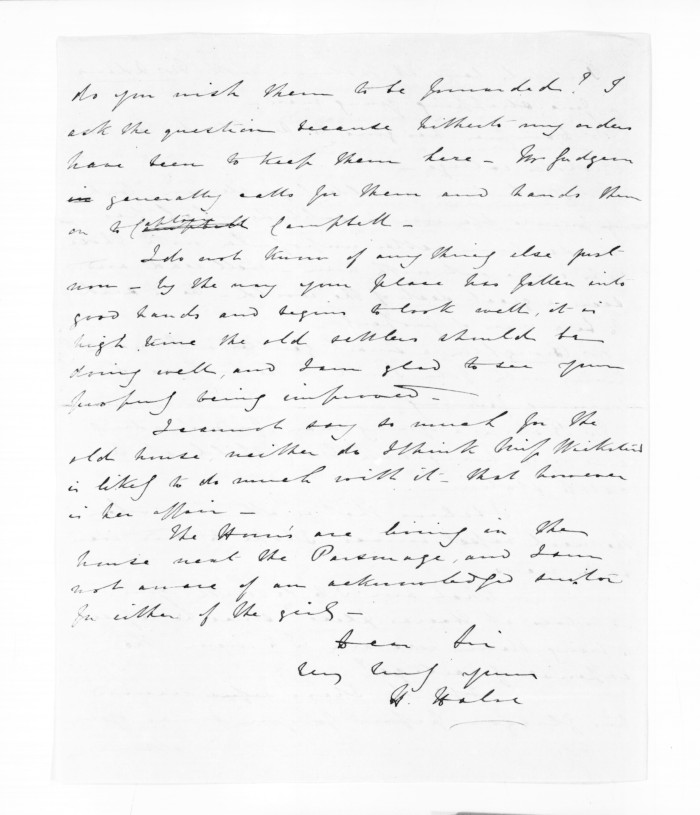 do you wish them to be forwarded? I
ask the question because hitherto my orders
have been to keep them here – Mr Gudgeon
in generally calls for them and hands them
on to Campbell –
I do not know of anything else just
now – by the way your place has fallen into
good hands and begins to look well, it is
high time the old settlers should be
doing well, and I am glad to see your
property being improved –
I cannot say so much for the
old house neither do I think Miss Wicksteed
is likely to do much with it – that however
is her affair –
The Horne's are living in the
house next the Parsonage, and I am
not aware of an acknowledged suitor
for either of the girls –
Dear Sir
Very truly yours
H. Halse